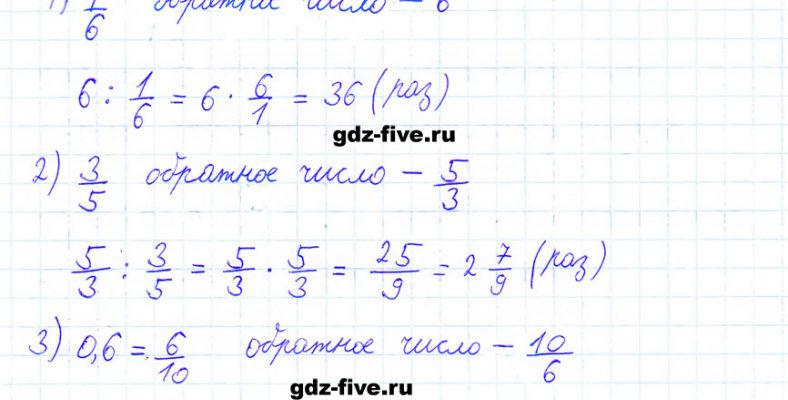 1) 1/6 обратное число – 6
6 : 1/6 = 6 · 6/1 = 36 (раз)
gdz-five.ru
2) 3/5 обратное число – 5/3
5/3 : 3/5 = 5/3 · 5/3 = 25/9 = 2 7/9 (раз)
3) 0,6 = 6/10 обратное число – 10/6
gdz-five.ru